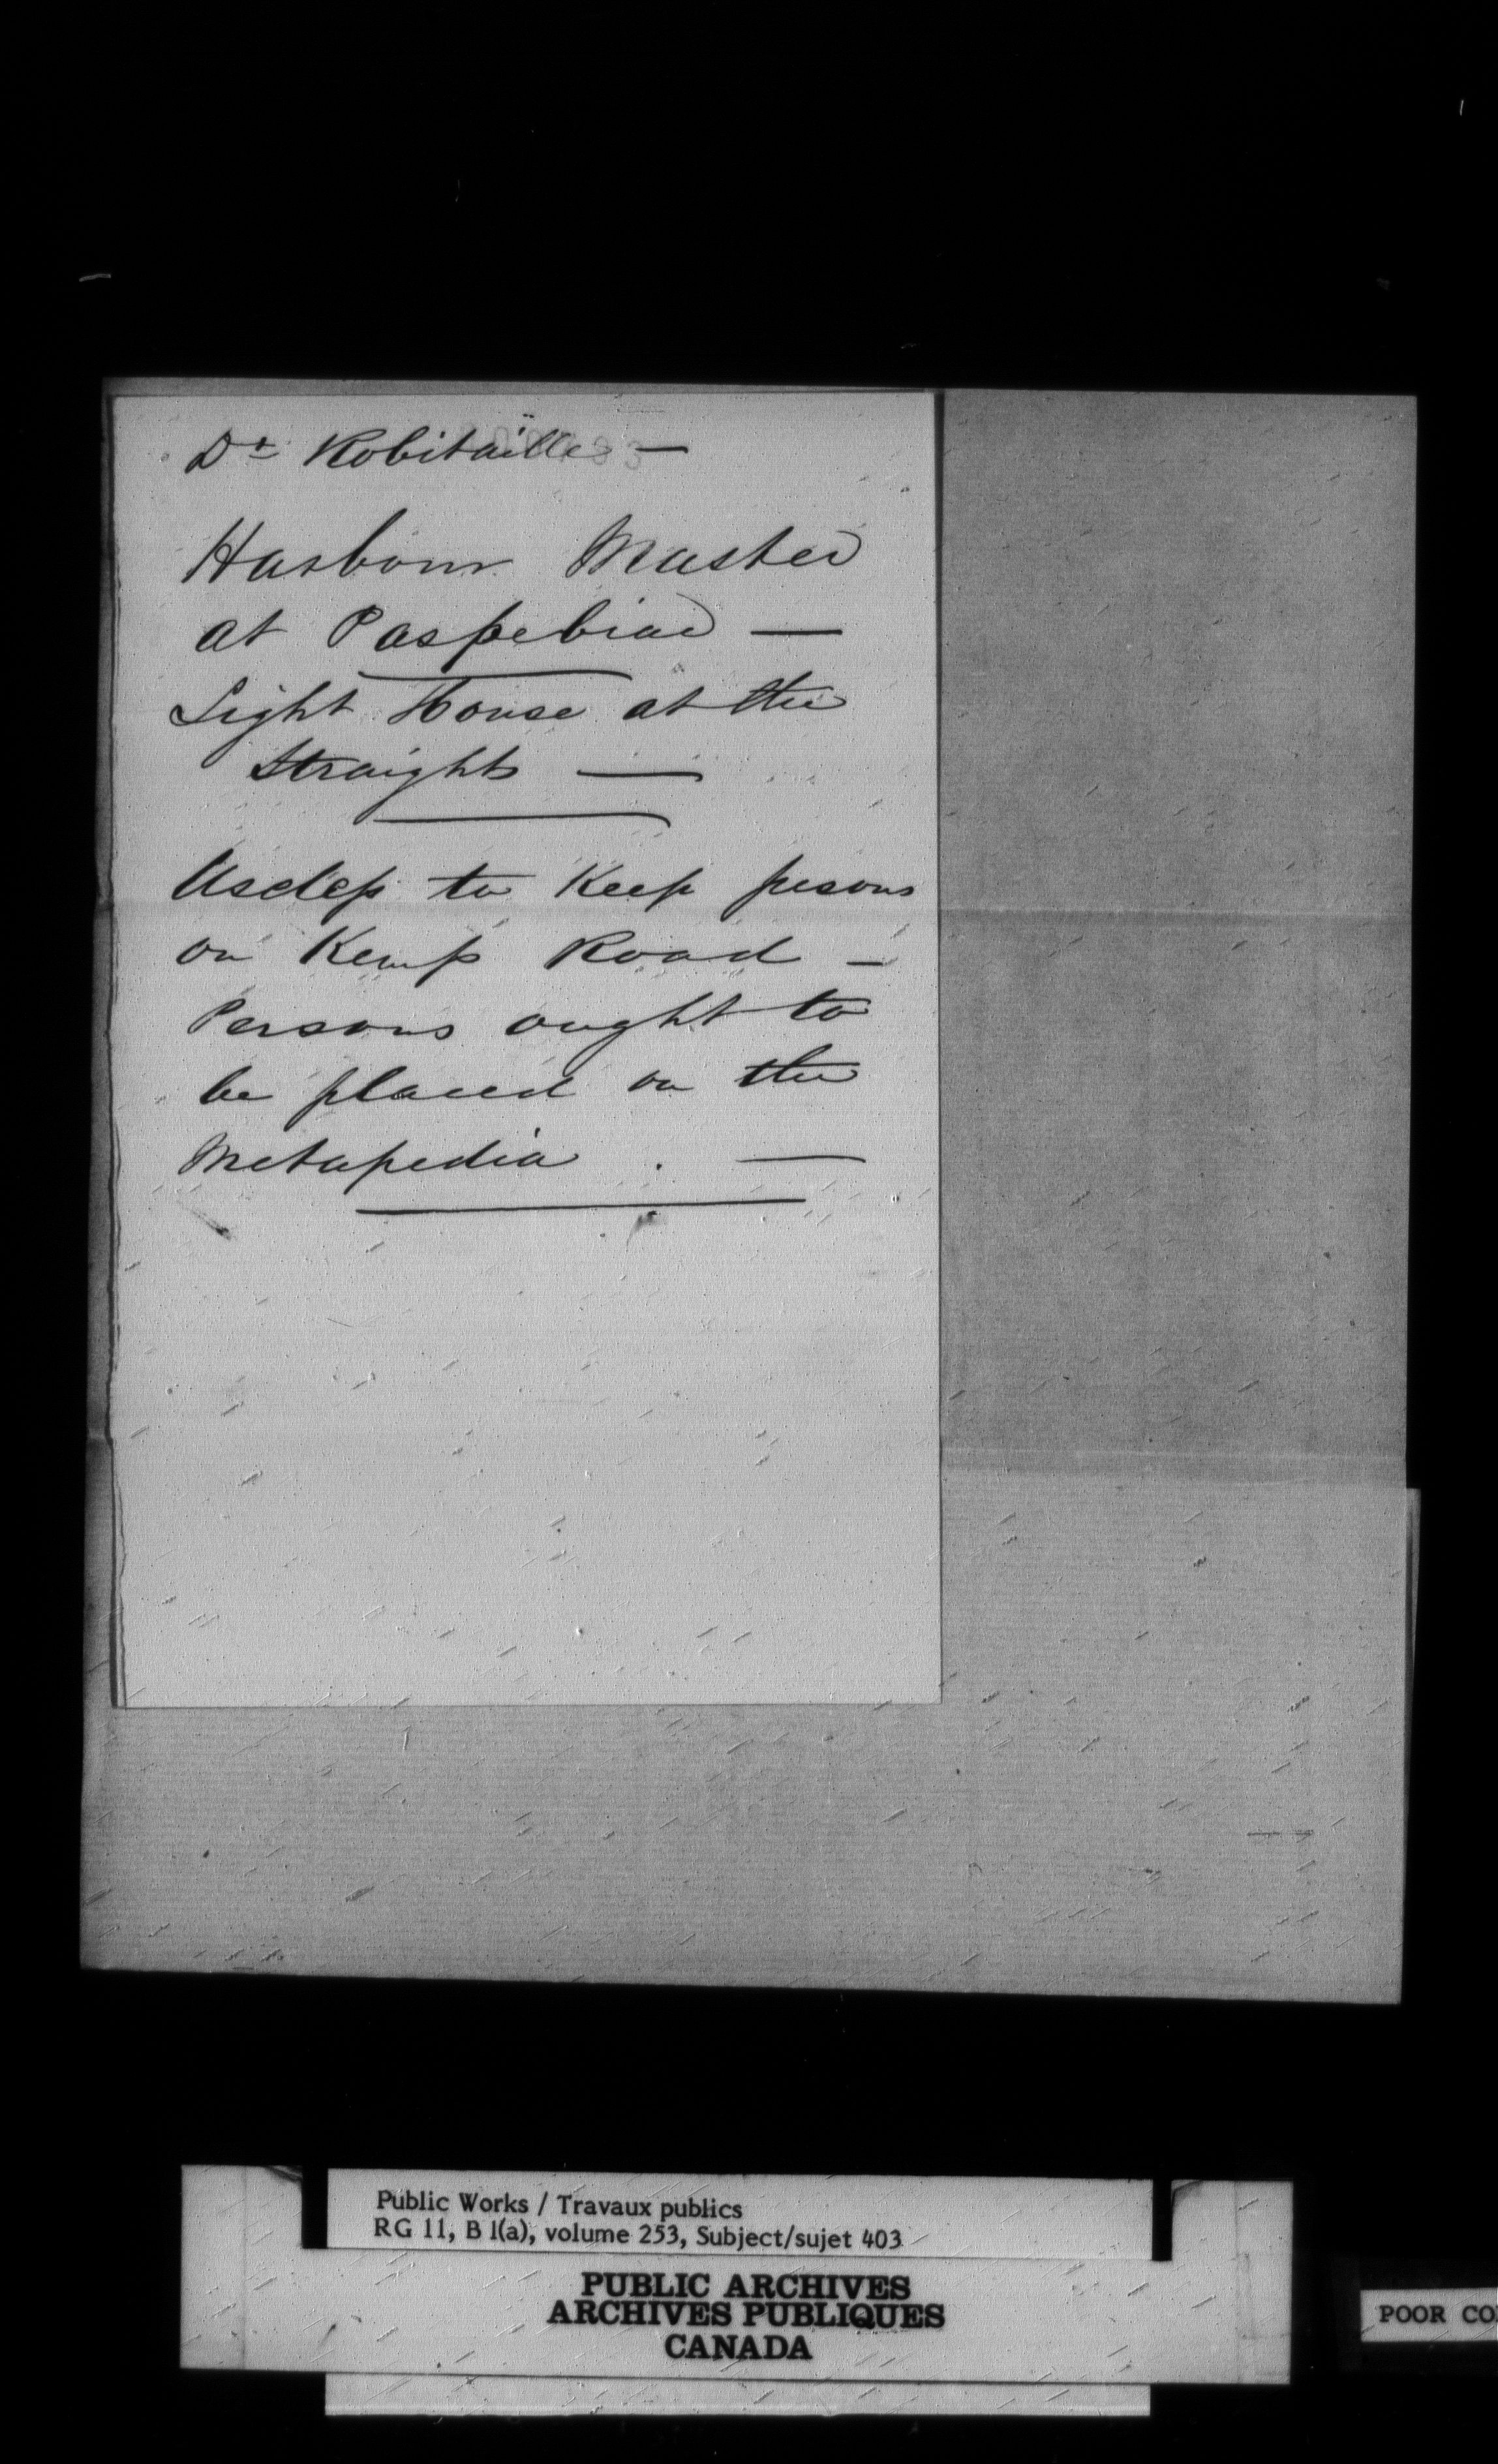 Dr Robitaille —
Harbour Master
at Paspebiac —
Light House at the
Straights —
Useless to Keep persons
on Kemp Road —
Persons ought to
be placed on the
Metapedia . —
Public Works / Travaux publics
RG 11, B 1(a), volume 253, Subject/sujet 403
PUBLIC ARCHIVES
ARCHIVES PUBLIQUES
CANADA
POOR CO